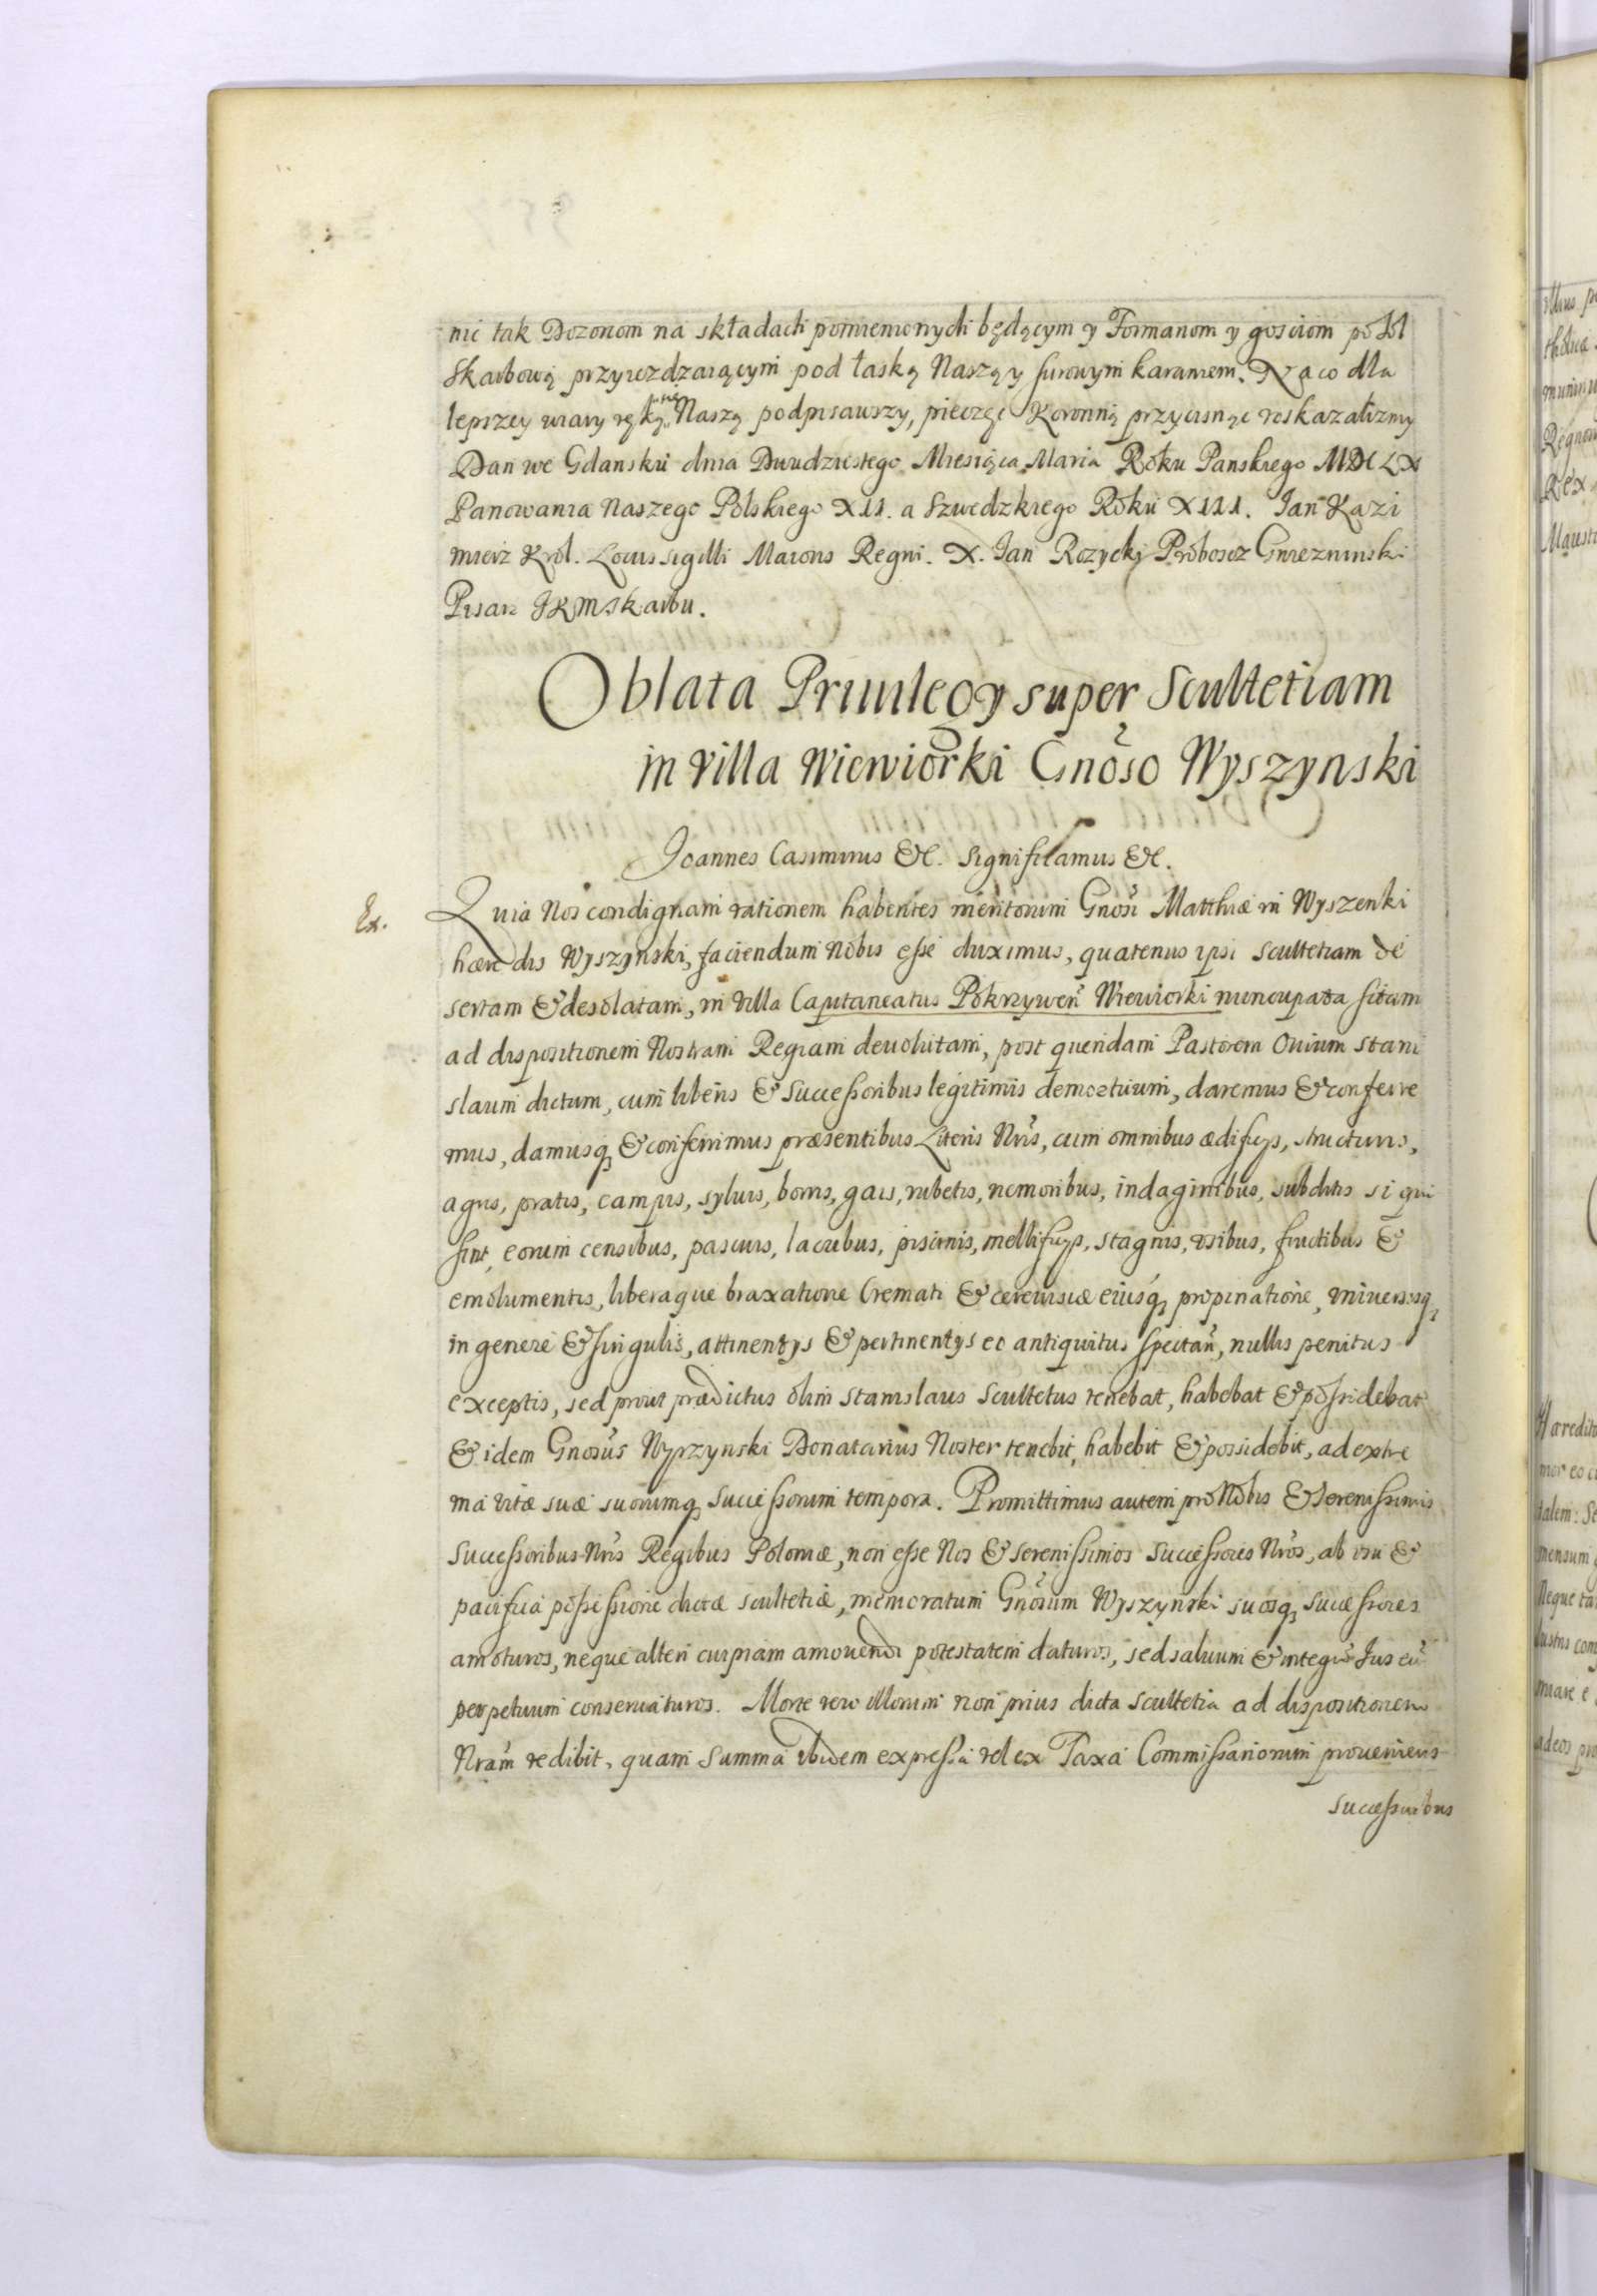 nic tak Dozorcom na składach pomienionych będącym y Formanom y gosciom po sol
Skarbową przyiezdzaiącym pod łaską Naszą y surowym karaniem. Na co dla
lepszey wiary ręką Naszą podpisawszy, pieczęc Koronną przycisnąc roskazalismy
Dan we Gdansku dnia Dwudziestego Miesiąca Maria Roku Panskiego MDCLX
Panowania Naszego Polskiego XII. a Szwedzkiego Roku XIII. Jan Kazi
mierz Krol. Locus sigilli Maioris Regni. X. Jan Rozycki Proboscz Gniezninski
Pisarz JKM Skarbu.
Oblata Priuilegy super Scultetiam
in Villa Wiewiorki Gnoso Wyszynski
Joannes Casimirus &c. Significamus &c.
Ex.
Quia Nos condignam rationem habentes meritorum Gnosi Matthiæ in Wyszenki
hæredis Wyszynski, faciendum Nobis esse duximus, quatenus ipsi Scultetiam de
sertam & desolatam, in Villa Capitaneatus Pokrzywen Wiewiorki nuncupata sitam
ad dispositionem Nostram Regiam deuolutam, post quendam Pastorem Ouium Stani
slaum dictum, cum liberis & Successoribus legitimis demortuum, daremus & conferre
mus, damusq & conferimus præsentibus Literis Nris, cum omnibus ædificys, structuris,
agris, pratis, campis, syluis, borris, gais, rubetis, nemoribus, indaginibus, subditis si qui
sint, eorum censibus, pascuis, lacubus, piscinis, mellificys, stagnis, vsibus, fructibus &
emolumentis, liberaque braxatione Cremati & cereuisiæ eiusq propinatione, vniuersisq
in genere & singulis, attinentys & pertinentys eo antiquitus spectan, nullis penitus
exceptis, sed prout prædictus olim Stanislaus Scultetus tenebat, habebat & possidebat
& idem Gnosus Wyszynski Donatarius Noster tenebit, habebit & possidebit, ad extre
ma vitæ suæ suorumq Successorum tempora. Promittimus autem pro Nobis & Serenissimis
Successoribus Nris Regibus Poloniæ, non esse Nos & Serenissimos Successores Nros, ab vsu &
pacifica possessione dictæ scultetiæ, memoratum Gnosum Wyszynski suosq Successores
amoturos, neque alteri cuipiam amouendi potestatem daturos, sed saluum & integrum Jus eu
perpetuum conseruaturos. Morte vero illorum non prius dicta Scultetia ad dispositionem
Nram redibit, quam Summa ibidem expressa vel ex Taxa Commissariorum proueniens
Successoribus